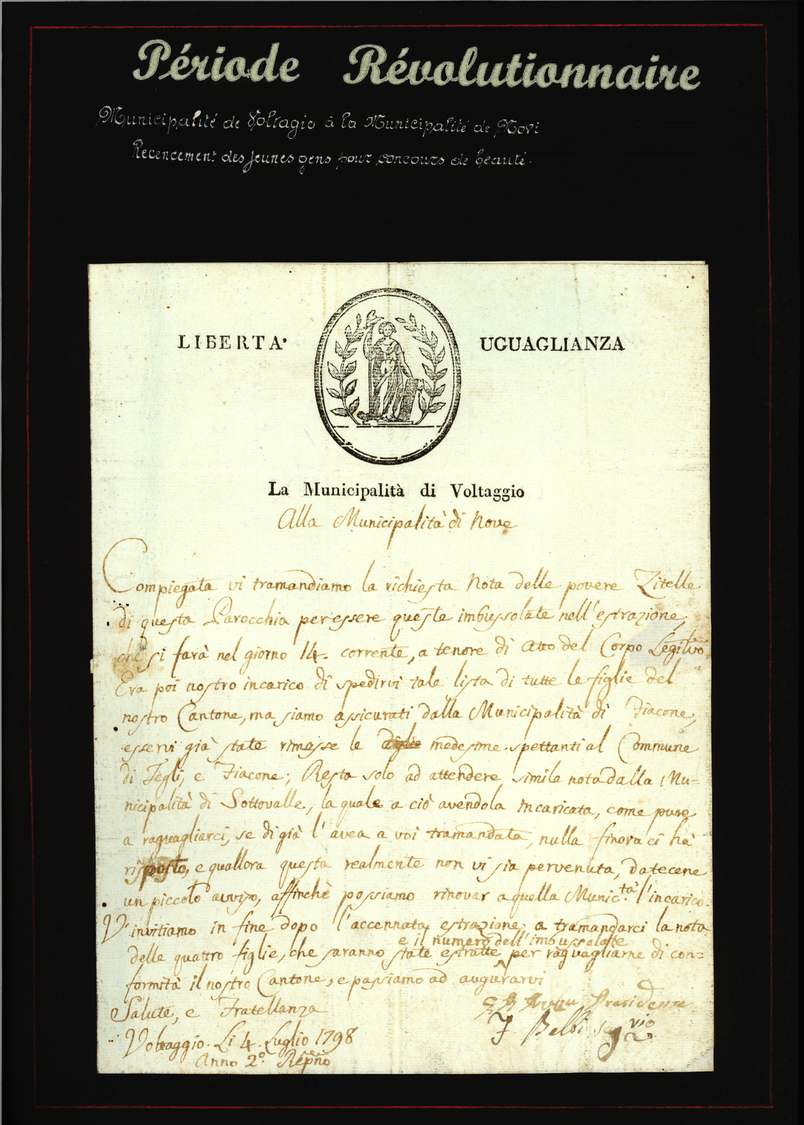 Période Révolutionnaire
Municipalité de Voltagio à la Municipalité de Novi
Recencement des jeunes gens pour concours de beauté.
LIBERTA' UGUAGLIANZA
La Municipalità di Voltaggio
Alla Municipalità di Nove
Compiegata vi tramandiamo la richiesta Nota delle povere Zitelle
di questa Parocchia per essere queste imbussolate nell'estrazione,
che si farà nel giorno 14. corrente, a tenore di Atto del Corpo Legil.vo
Era poi nostro incarico di spedirvi tale lista di tutte le figlie del
nostro Cantone, ma siamo assicurati dalla Municipalità di Fiacone,
esservi già state rimesse le medesime spettanti al Commune
di Tegli, e Fiacone; Resta solo ad attendere simile nota dalla Mu=
nicipalità di Sottovalle, la quale a ciò avendola incaricata, come pure
a raguagliarci, se di già l'avea a voi tramandata, nulla finora ci hà
risposto, e quallora questa realmente non vi sia pervenuta, datecene
un piccolo avviso, affinchè possiamo rinovar a quella Munic.tà l'incarico.
V'invitiamo in fine dopo l'accennata estrazione; a tramandarci la nota
e il numero dell'imbussolate
delle quattro figlie, che saranno state estratte per raguagliarne di con=
formità il nostro Cantone, e passiamo ad augurarvi
Salute, e Fratellanza
Presidente
Voltaggio. Li 4. Luglio 1798
F. Balbi
Anno 2º. Rep̃no